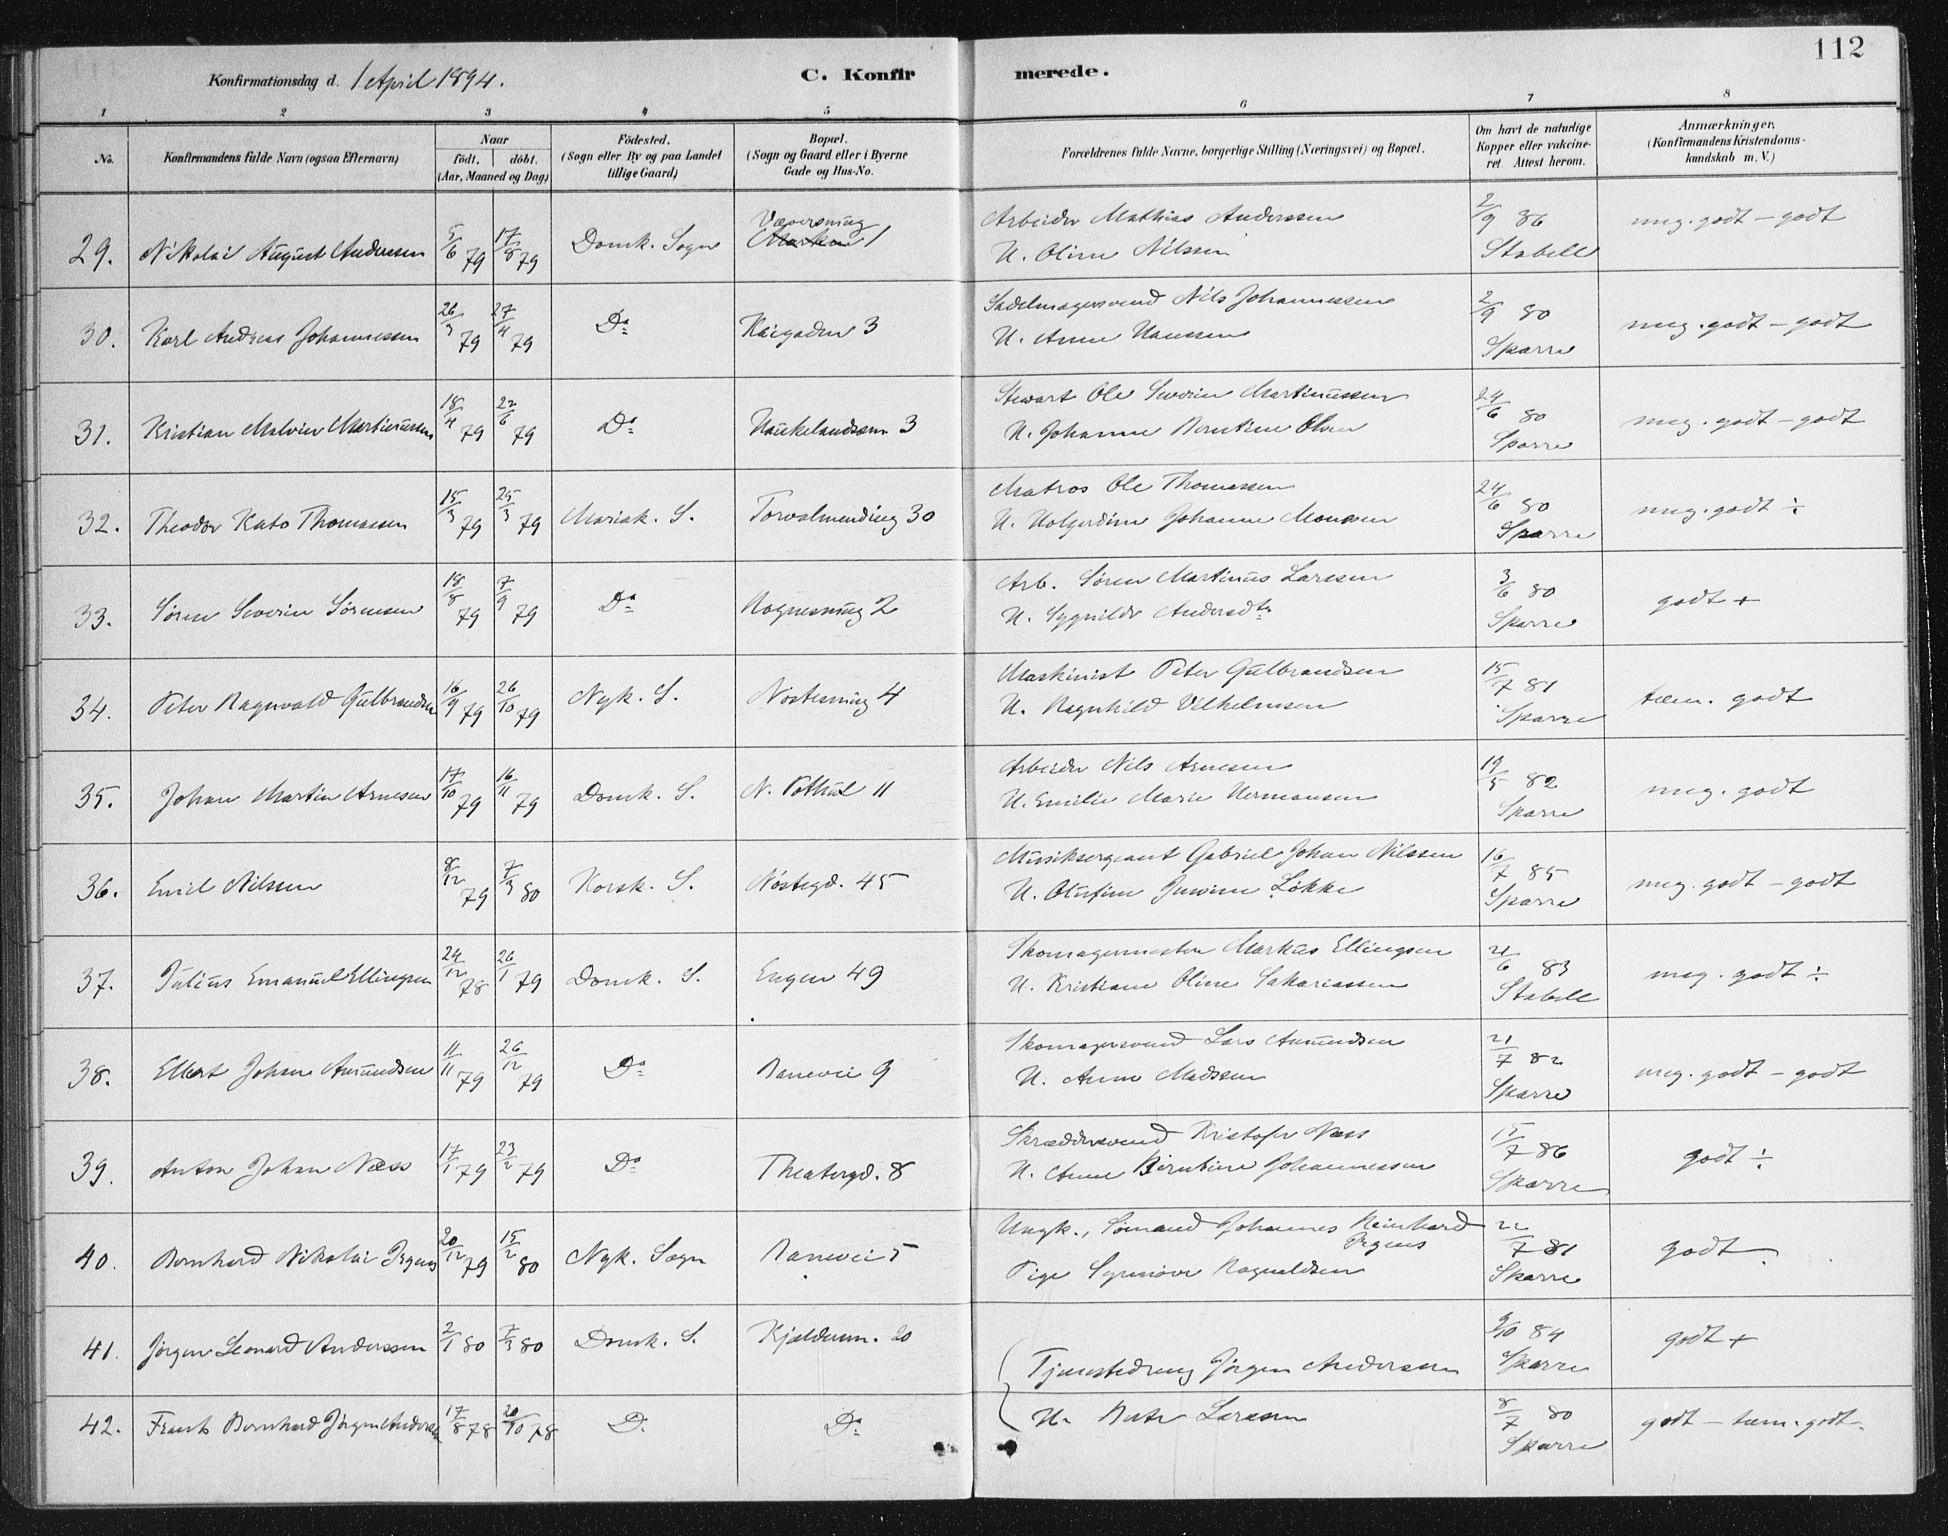 112
Konfirmationsdag d. 1 April 1894.
C. Konfir
merede.
1 2 3 4 5 6 7 8
No.
Konfirmandens fulde Navn (ogsaa Efternavn)
Naar
født. døbt.
(Aar, Maaned og Dag)
Fødested.
(Sogn eller By og paa Landet
tillige Gaard)
Bopæl.
(Sogn og Gaard eller i Byerne
Gade og Hus-No.
Forældrenes fulde Navne, borgerlige Stilling (Næringsvei) og Bopæl.
Om havt de naturlige
Kopper eller vakcine-
ret Attest herom.
Anmærkninger.
(Konfirmandens Kristendoms-
kundskab m. V.)
29. Nikolai August Anderssen 5/6 79 17/8 79 Domk. Sogn 1
Arbeider Mathias Anderssen
H. Oline Nilssen
2/9 86
Stabell
meg. godt – godt
30. Karl Andreas Johannessen 26/3 79 27/4 79 Do Kaigaden 3
Sadelmagersvend Nils Johannessen
H. Anne Hanssen
2/9 80
Sparre
meg. godt – godt
31. Kristian Malvin Martinussen 18/4 79 22/6 79 Do Haukelandsvn 3
Stewart Ole Severin Martinussen
H. Johanne Berntine Olsen
24/6 80
Sparre
meg. godt – godt
32. Theodor Kato Thomassen 15/3 79 25/3 79 Mariak. S. Torvalmending 30
Matros Ole Thomassen
H. Holgerdine Johanne Monsen
24/6 80
Sparre
meg. godt ÷
33. Søren Severin Sørensen 18/8 79 7/9 79 Do 2
Arb. Søren Martinus Larssen
H. Andersdtr
3/6 80
Sparre
godt +
34. Peter Ragnvald Gulbrandsen 16/9 79 26/10 79 Nyk. S. Nøstesmug 4
Maskinist Peter Gulbrandsen
H. Ragnhild Vilhelmsen
15/7 81
Sparre
tem. godt
35. Johan Martin Arnesen 17/10 79 16/11 79 Domk. S. 11
Arbeider Nils Arnesen
H. Emilie Marie Hermansen
19/5 82
Sparre
meg. godt
36. Emil Nilssen 8/12 79 7/3 80 Korsk. S. Nøstegd. 45
Musiksergeant Gabriel Johan Nilssen
H. Olufine Løkke
16/7 85
Sparre
meg. godt – godt
37. Julius Emanuel Ellingsen 24/12 78 26/1 79 Domk. S. Engen 49
Skomagermester Markus Ellingsen
H. Kristiane Oline Sakariassen
21/6 83
Stabell
meg. godt ÷
38. Johan Amundsen 11/11 79 26/12 79 Do Banevei 9
Skomagersvend Lars Amundsen
H. Anne Madssen
21/7 82
Sparre
meg. godt – godt
39. Anton Johan Næss 17/1 79 23/2 79 Do Theatergd. 8
Skræddersvend Kristofer Næss
H. Anne Berntine Johannessen
15/7 86
Sparre
godt ÷
40. Bernhard Nikolai Irgens 20/12 79 15/2 80 Nyk. Sogn Banevei 5
Ungk., Sømand Johannes Reinhard
Irgens
Pige Synnøve Ragnvaldsen
22/7 81
Sparre
godt
41. Jørgen Leonard Anderssen 2/1 80 7/3 80 Domk. S. Kjelderm. 20
Tjenestedreng Jørgen Anderssen
9/10 84
Sparre
godt +
42. Frants Bernhard Jørgen Anderssen 17/8 78 20/10 78 D. Do
H. Larssen
8/7 80
Sparre
godt – tem. godt.